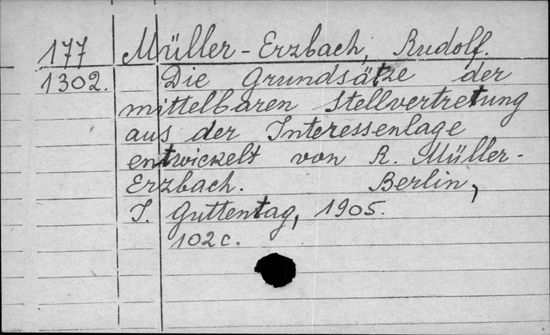 177 Müller-Erzbach, Rudolf.
1302. Die Grundsätze der
mittelbaren Stellvertretung
aus der Interessenlage
entwickelt von R. Müller-
Erzbach. Berlin,
J. Guttentag, 1905.
102 c.